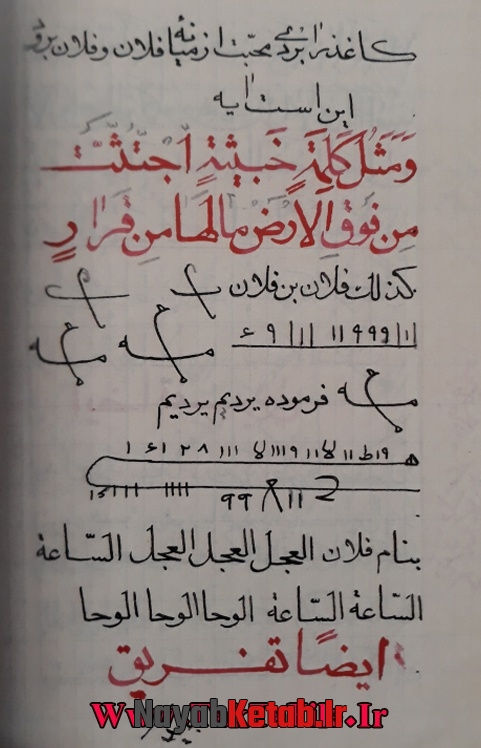 کاغذ را بردی محبت از میانه فلان و فلان برود
این است آیه
وَمَثَلُ كَلِمَةٍ خَبيثَةٍ اجتُثَّت
مِن فَوقِ الاَرضِ مالَهَا مِن قَرارٍ
کذلك فلان بن فلان
فرموده یردیم یردیم
بنام فلان العجل العجل العجل السّاعة
السّاعة السّاعة الوحا الوحا الوحا
ایضًا تفریق
NayabKetab.Ir